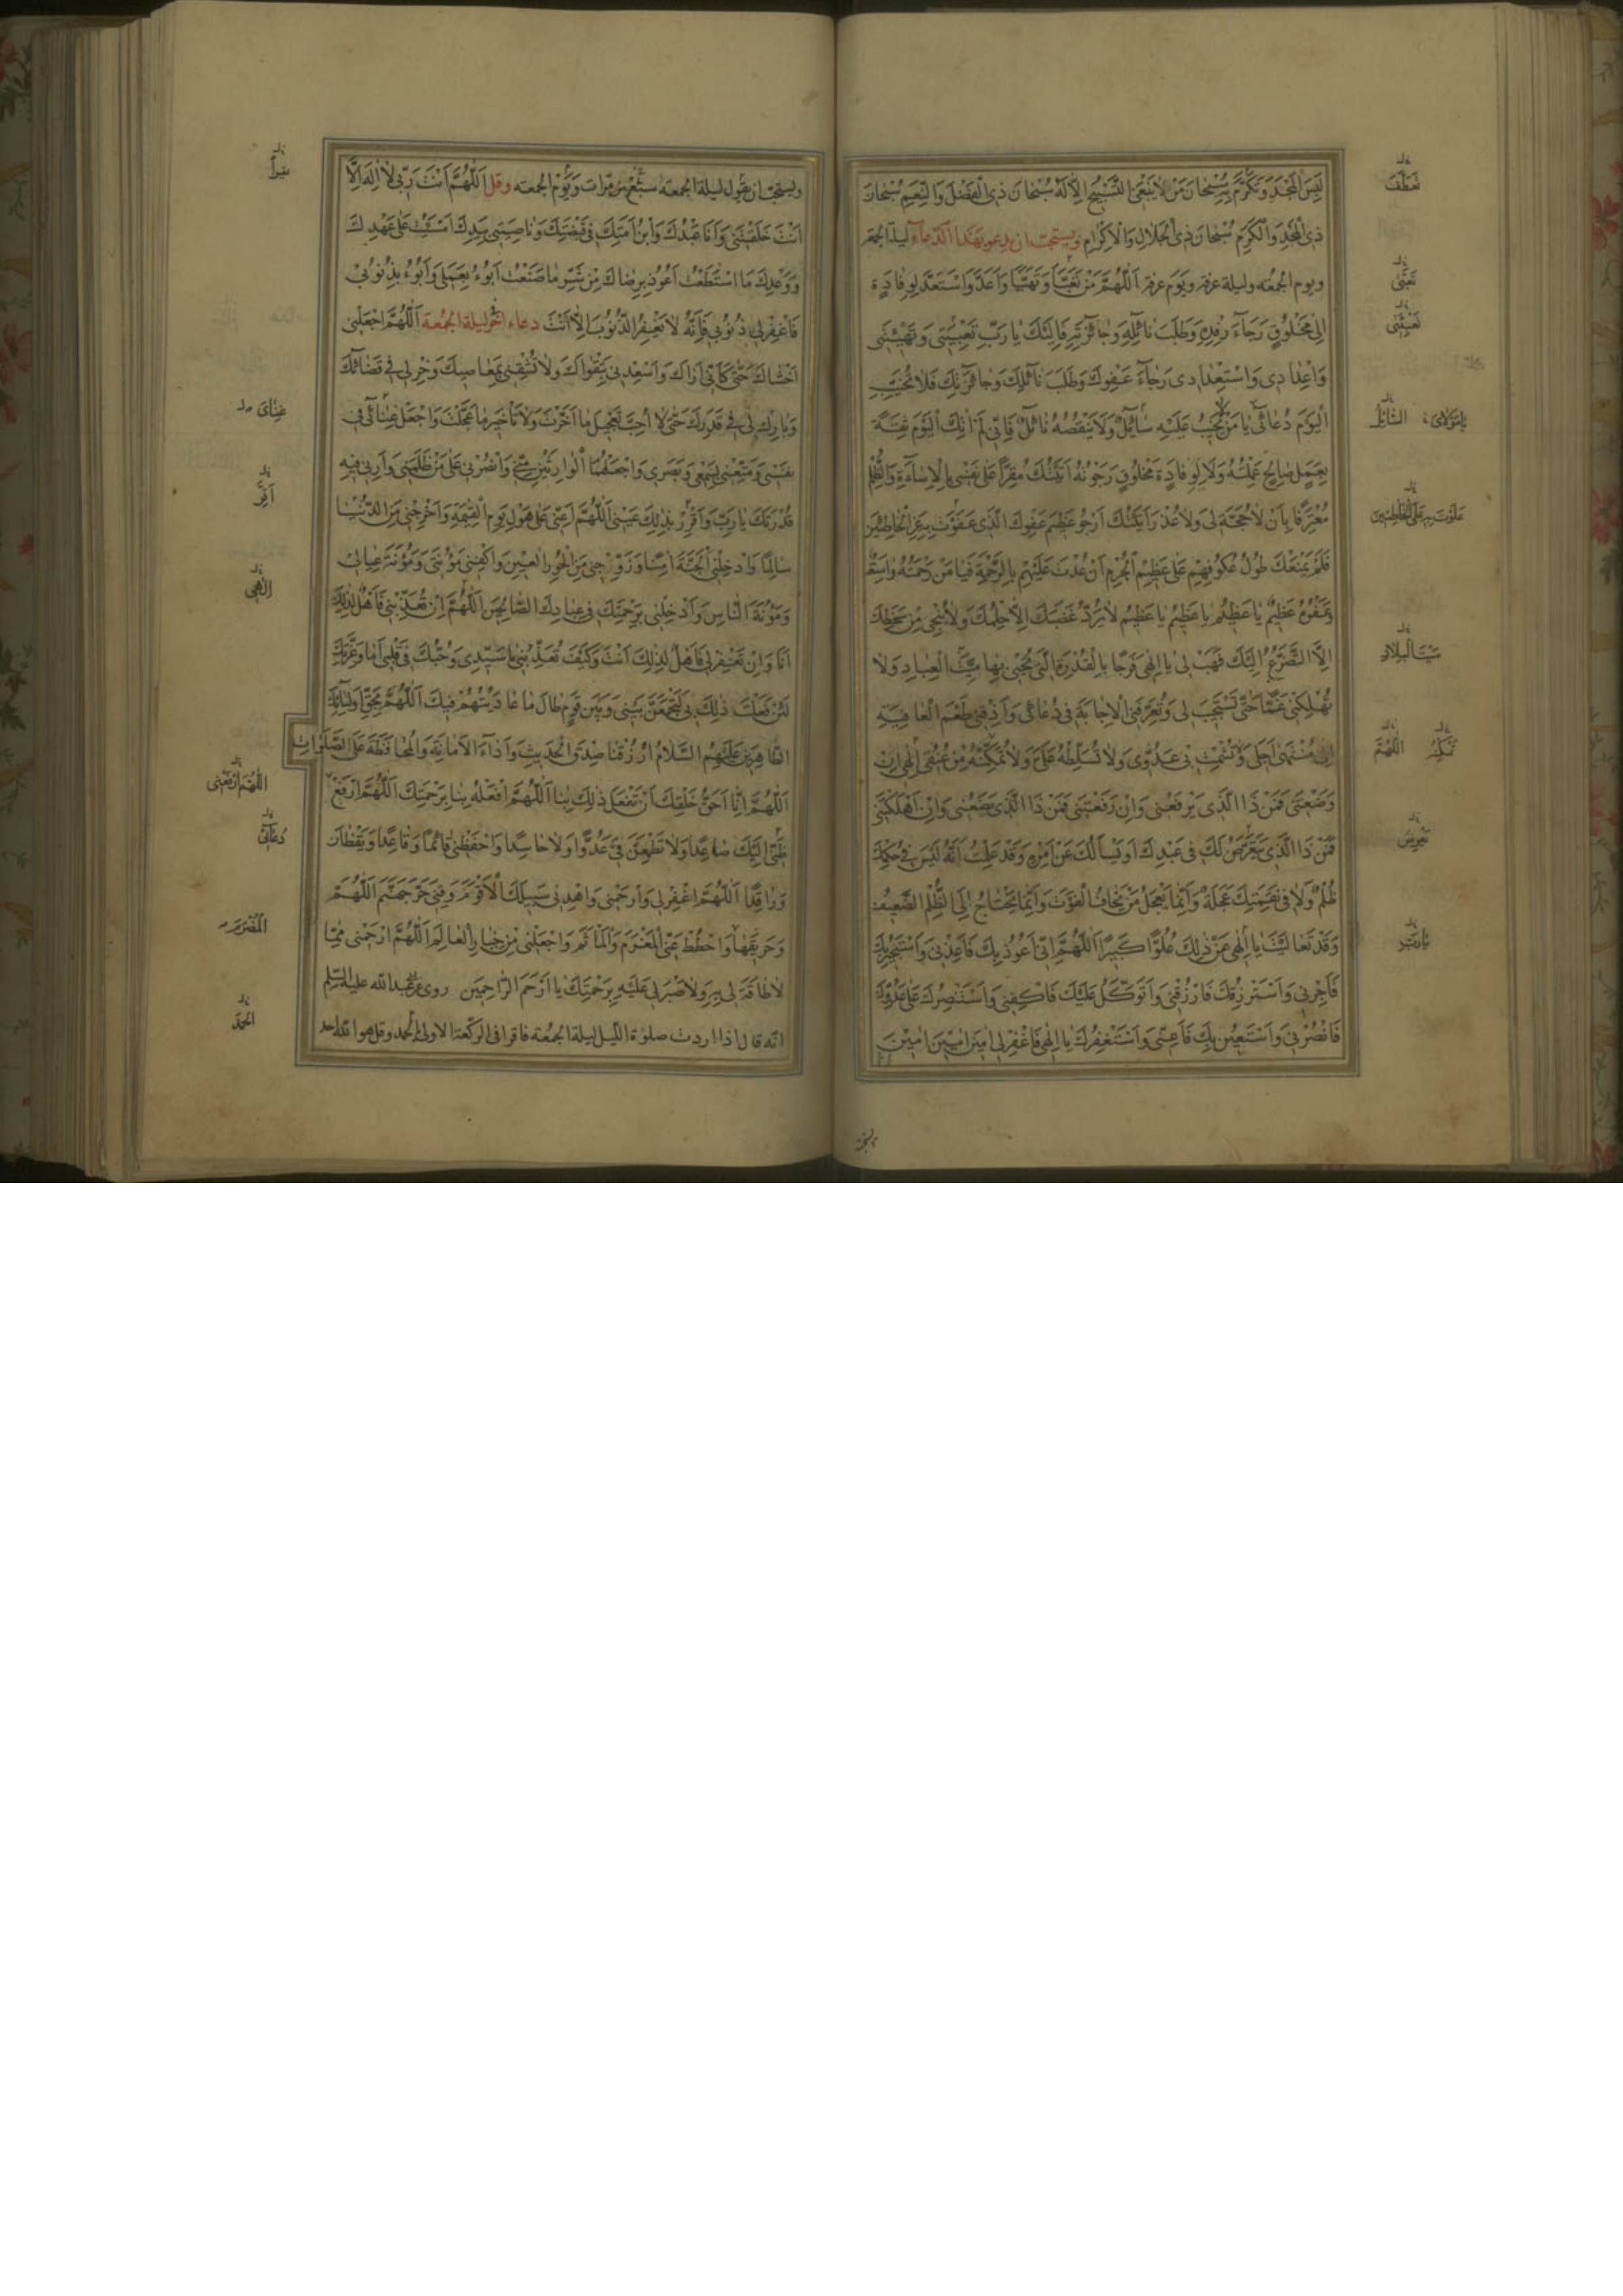 لَبِسَ الْمَجْدَ وَتَكَرَّمَ بِهِ سُبْحَانَ مَنْ لَا يَنْبَغِي التَّسْبِيحُ إِلَّا لَهُ سُبْحَانَ ذِي الْفَضْلِ وَالنِّعَمِ سُبْحَانَ
ذِي الْمَجْدِ وَالْكَرَمِ سُبْحَانَ ذِي الْجَلَالِ وَالْإِكْرَامِ ويستحبّ ان يدعو بهذا الدّعاء ليلة الجمعة
ويوم الجمعه وليلة عرفه ويوم عرفه اَللّٰهُمَّ مَنْ تَعَبَّأَ وَتَهَيَّأَ وَاَعَدَّ وَاسْتَعَدَّ لِوِفَادَةٍ
اِلٰى مَخْلُوقٍ رَجَاءَ رِفْدِهِ وَطَلَبَ نَائِلِهِ وَجَائِزَتِهِ فَاِلَيْكَ يَا رَبِّ تَعْبِيَتِي وَتَهْيِئَتِي
وَاِعْدَادِي وَاسْتِعْدَادِي رَجَاءَ عَفْوِكَ وَطَلَبَ نَائِلِكَ وَجَائِزَتِكَ فَلَا تُخَيِّبِ
الْيَوْمَ دُعَائِي يَا مَنْ لَا يَخِيبُ عَلَيْهِ سَائِلٌ وَلَا يَنْقُصُهُ نَائِلٌ فَاِنِّي لَمْ اٰتِكَ الْيَوْمَ ثِقَةً
بِعَمَلٍ صَالِحٍ عَمِلْتُهُ وَلَا لِوِفَادَةِ مَخْلُوقٍ رَجَوْتُهُ اَتَيْتُكَ مُقِرًّا عَلٰى نَفْسِي بِالْاِسَاءَةِ وَالظُّلْمِ
مُعْتَرِفًا بِاَنْ لَا حُجَّةَ لِي وَلَا عُذْرَ اَتَيْتُكَ اَرْجُو عَظِيمَ عَفْوِكَ الَّذِي عَفَوْتَ بِهِ عَنِ الْخَاطِئِينَ
فَلَمْ يَمْنَعْكَ طُولُ عُكُوفِهِمْ عَلٰى عَظِيمِ الْجُرْمِ اَنْ عُدْتَ عَلَيْهِمْ بِالرَّحْمَةِ فَيَا مَنْ رَحْمَتُهُ وَاسِعَةٌ
وَعَفْوُهُ عَظِيمٌ يَا عَظِيمُ يَا عَظِيمُ يَا عَظِيمُ لَا يَرُدُّ غَضَبَكَ اِلَّا حِلْمُكَ وَلَا يُنْجِي مِنْ سَخَطِكَ
اِلَّا التَّضَرُّعُ اِلَيْكَ فَهَبْ لِي يَا اِلٰهِي فَرَجًا بِالْقُدْرَةِ الَّتِي تُحْيِي بِهَا مَيْتَ الْعِبَادِ وَلَا
تُهْلِكْنِي غَمًّا حَتّٰى تَسْتَجِيبَ لِي وَتُعَرِّفَنِي الْاِجَابَةَ فِي دُعَائِي وَاَذِقْنِي طَعْمَ الْعَافِيَةِ
اِلٰى مُنْتَهٰى اَجَلِي وَلَا تُشْمِتْ بِي عَدُوِّي وَلَا تُسَلِّطْهُ عَلَيَّ وَلَا تُمَكِّنْهُ مِنْ عُنُقِي اِلٰهِي اِنْ
وَضَعْتَنِي فَمَنْ ذَا الَّذِي يَرْفَعُنِي وَاِنْ رَفَعْتَنِي فَمَنْ ذَا الَّذِي يَضَعُنِي وَاِنْ اَهْلَكْتَنِي
فَمَنْ ذَا الَّذِي يَتَعَرَّضُ لَكَ فِي عَبْدِكَ اَوْ يَسْاَلُكَ عَنْ اَمْرِهِ وَقَدْ عَلِمْتُ اَنَّهُ لَيْسَ فِي حُكْمِكَ
ظُلْمٌ وَلَا فِي نَقِمَتِكَ عَجَلَةٌ وَاِنَّمَا يَعْجَلُ مَنْ يَخَافُ الْفَوْتَ وَاِنَّمَا يَحْتَاجُ اِلَى الظُّلْمِ الضَّعِيفُ
وَقَدْ تَعَالَيْتَ يَا اِلٰهِي عَنْ ذٰلِكَ عُلُوًّا كَبِيرًا اَللّٰهُمَّ اِنِّي اَعُوذُ بِكَ فَاَعِذْنِي وَاَسْتَجِيرُ بِكَ
فَاَجِرْنِي وَاَسْتَرْزِقُكَ فَارْزُقْنِي وَاَتَوَكَّلُ عَلَيْكَ فَاكْفِنِي وَاَسْتَنْصِرُكَ عَلٰى عَدُوِّكَ
فَانْصُرْنِي وَاَسْتَعِينُ بِكَ فَاَعِنِّي وَاَسْتَغْفِرُكَ يَا اِلٰهِي فَاغْفِرْ لِي اٰمِينَ اٰمِينَ اٰمِينَ
تَعَطَّفَ
تَعَبَّى
يَا مَوْلَايَ السَّائِلُ
عَلَوْتَ بِهِ عَلَى الْخَاطِئِينَ
مَيْتَ الْبِلَادِ
اللّٰهُمَّ
يَعْرِضُ
يَا رَبِّ
ويستحبّ ان يقول ليلة الجمعة سبع مرّات ويوم الجمعه وقل اَللّٰهُمَّ اَنْتَ رَبِّي لَا اِلٰهَ اِلَّا
اَنْتَ خَلَقْتَنِي وَاَنَا عَبْدُكَ وَابْنُ اَمَتِكَ فِي قَبْضَتِكَ وَنَاصِيَتِي بِيَدِكَ اَمْسَيْتُ عَلٰى عَهْدِكَ
وَوَعْدِكَ مَا اسْتَطَعْتُ اَعُوذُ بِرِضَاكَ مِنْ شَرِّ مَا صَنَعْتُ اَبُوءُ بِعَمَلِي وَاَبُوءُ بِذُنُوبِي
فَاغْفِرْ لِي ذُنُوبِي فَاِنَّهُ لَا يَغْفِرُ الذُّنُوبَ اِلَّا اَنْتَ دعاء اخر ليلة الجمعة اَللّٰهُمَّ اجْعَلْنِي
اَخْشَاكَ حَتّٰى كَاَنِّي اَرَاكَ وَاَسْعِدْنِي بِتَقْوَاكَ وَلَا تُشْقِنِي بِمَعَاصِيكَ وَخِرْ لِي فِي قَضَائِكَ
وَبَارِكْ لِي فِي قَدَرِكَ حَتّٰى لَا اُحِبَّ تَعْجِيلَ مَا اَخَّرْتَ وَلَا تَأْخِيرَ مَا عَجَّلْتَ وَاجْعَلْ غِنَائِي فِي
نَفْسِي وَمَتِّعْنِي بِسَمْعِي وَبَصَرِي وَاجْعَلْهُمَا الْوَارِثَيْنِ مِنِّي وَانْصُرْنِي عَلٰى مَنْ ظَلَمَنِي وَاَرِنِي فِيهِ
قُدْرَتَكَ يَا رَبِّ وَاَقْرِرْ بِذٰلِكَ عَيْنِي اَللّٰهُمَّ اَعِنِّي عَلٰى هَوْلِ يَوْمِ الْقِيٰمَةِ وَاَخْرِجْنِي مِنَ الدُّنْيَا
سَالِمًا وَاَدْخِلْنِي الْجَنَّةَ اٰمِنًا وَزَوِّجْنِي مِنَ الْحُورِ الْعِينِ وَاكْفِنِي مَؤُنَتِي وَمَؤُنَةَ عِيَالِي
وَمَؤُنَةَ النَّاسِ وَاَدْخِلْنِي بِرَحْمَتِكَ فِي عِبَادِكَ الصَّالِحِينَ اَللّٰهُمَّ اِنْ تُعَذِّبْنِي فَاَهْلٌ لِذٰلِكَ
اَنَا وَاِنْ تَغْفِرْ لِي فَاَهْلٌ لِذٰلِكَ اَنْتَ وَكَيْفَ تُعَذِّبُنِي يَا سَيِّدِي وَحُبُّكَ فِي قَلْبِي اَمَا وَعِزَّتِكَ
لَئِنْ فَعَلْتَ ذٰلِكَ بِي لَتَجْمَعَنَّ بَيْنِي وَبَيْنَ قَوْمٍ طَالَ مَا عَادَيْتُهُمْ فِيكَ اَللّٰهُمَّ بِحَقِّ اَوْلِيَائِكَ
الطَّاهِرِينَ عَلَيْهِمُ السَّلَامُ ارْزُقْنَا صِدْقَ الْحَدِيثِ وَاَدَاءَ الْاَمَانَةِ وَالْمُحَافَظَةَ عَلَى الصَّلَوَاتِ
اَللّٰهُمَّ اِنَّا اَحَقُّ خَلْقِكَ اَنْ تَفْعَلَ ذٰلِكَ بِنَا اَللّٰهُمَّ افْعَلْهُ بِنَا بِرَحْمَتِكَ اَللّٰهُمَّ ارْفَعْ
ظَنِّي اِلَيْكَ صَاعِدًا وَلَا تُطْمِعَنَّ فِيَّ عَدُوًّا وَلَا حَاسِدًا وَاحْفَظْنِي قَائِمًا وَقَاعِدًا وَيَقْظَانَ
وَرَاقِدًا اَللّٰهُمَّ اغْفِرْ لِي وَارْحَمْنِي وَاهْدِنِي سَبِيلَكَ الْاَقْوَمَ وَقِنِي حَرَّ جَهَنَّمَ اَللّٰهُمَّ
وَحَرِيقَهَا وَاحْطُطْ عَنِّي الْمَغْرَمَ وَالْمَأْثَمَ وَاجْعَلْنِي مِنْ خِيَارِ الْعَالَمِ اَللّٰهُمَّ ارْحَمْنِي مِمَّا
لَا طَاقَةَ لِي بِهِ وَلَا صَبْرَ لِي عَلَيْهِ بِرَحْمَتِكَ يَا اَرْحَمَ الرَّاحِمِينَ روى عن ابى عبدالله عليه السّلم
انّه قال اذا اردت صلوة اللّيل ليلة الجمعه فاقرا فى الركعة الاولى بالحمد وقل هو الله احد
يقرأ
غِنَايَ
اَقِرَّ
اِلٰهِي
دُعَائِي
الْمُضْرَمَ
الحمد